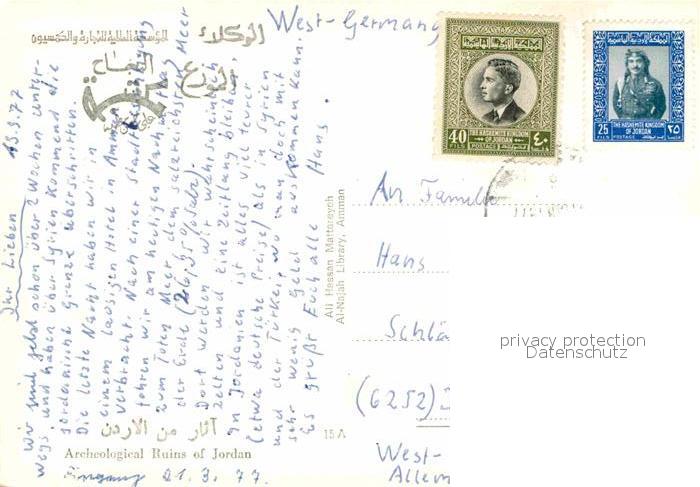 West-Germany
الوكلاء
المؤسسة العالمية للتجارة والكمسيون
الموزع
المملكة الاردنية الهاشمية
40
FILS
THE HASHEMITE KINGDOM
OF JORDAN
POSTAGE
٤٠
المملكة الاردنية الهاشمية
25
FILS
THE HASHEMITE KINGDOM
OF JORDAN
POSTAGE
٢٥
19.3.77
Ihr Lieben
Wir sind jetzt schon über 2 Wochen unter-
wegs und haben über Syrien kommend die
jordanische Grenze überschritten.
Die letzte Nacht haben wir in
einem lausigen Hotel in Amman
verbracht. Nach einer Stadtbesichtigung
fahren wir am heutigen Nachmittag
zum Toten Meer dem salzreichsten Meer
der Erde (26,35% Salz).
Dort werden wir wahrscheinlich
zelten und eine Zeitlang bleiben.
In Jordanien ist alles viel teurer
(etwa deutsche Preise) als in Syrien
und der Türkei, wo man doch mit
sehr wenig Geld auskommen kann.
Es grüßt Euch alle Hans
Ali Hassan Mattareyeh
Al-Najah Library, Amman
An Familie
Hans
(6252)
West-
privacy protection
Datenschutz
آثار من الاردن
15 A
Archeological Ruins of Jordan
Eingang 21.3.77.